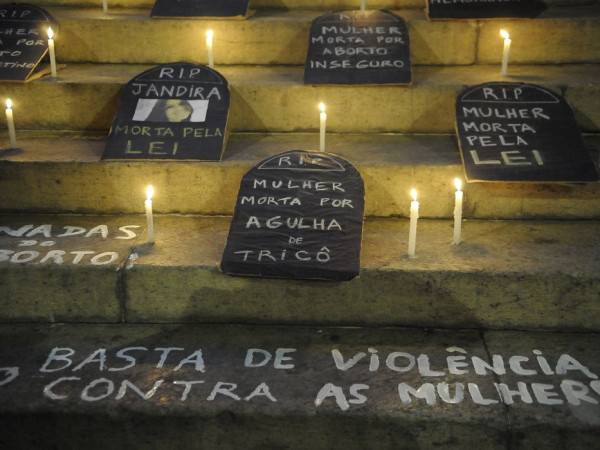 MORTA POR
ABORTO
RIP
MULHER
MORTA POR
ABORTO
INSEGURO
RIP
JANDIRA
MORTA PELA
LEI
RIP
MULHER
MORTA
PELA
LEI
RIP
MULHER
MORTA POR
AGULHA
DE
TRICÔ
NADAS
DO
BORTO
BASTA DE VIOLÊNCIA
O CONTRA AS MULHERES